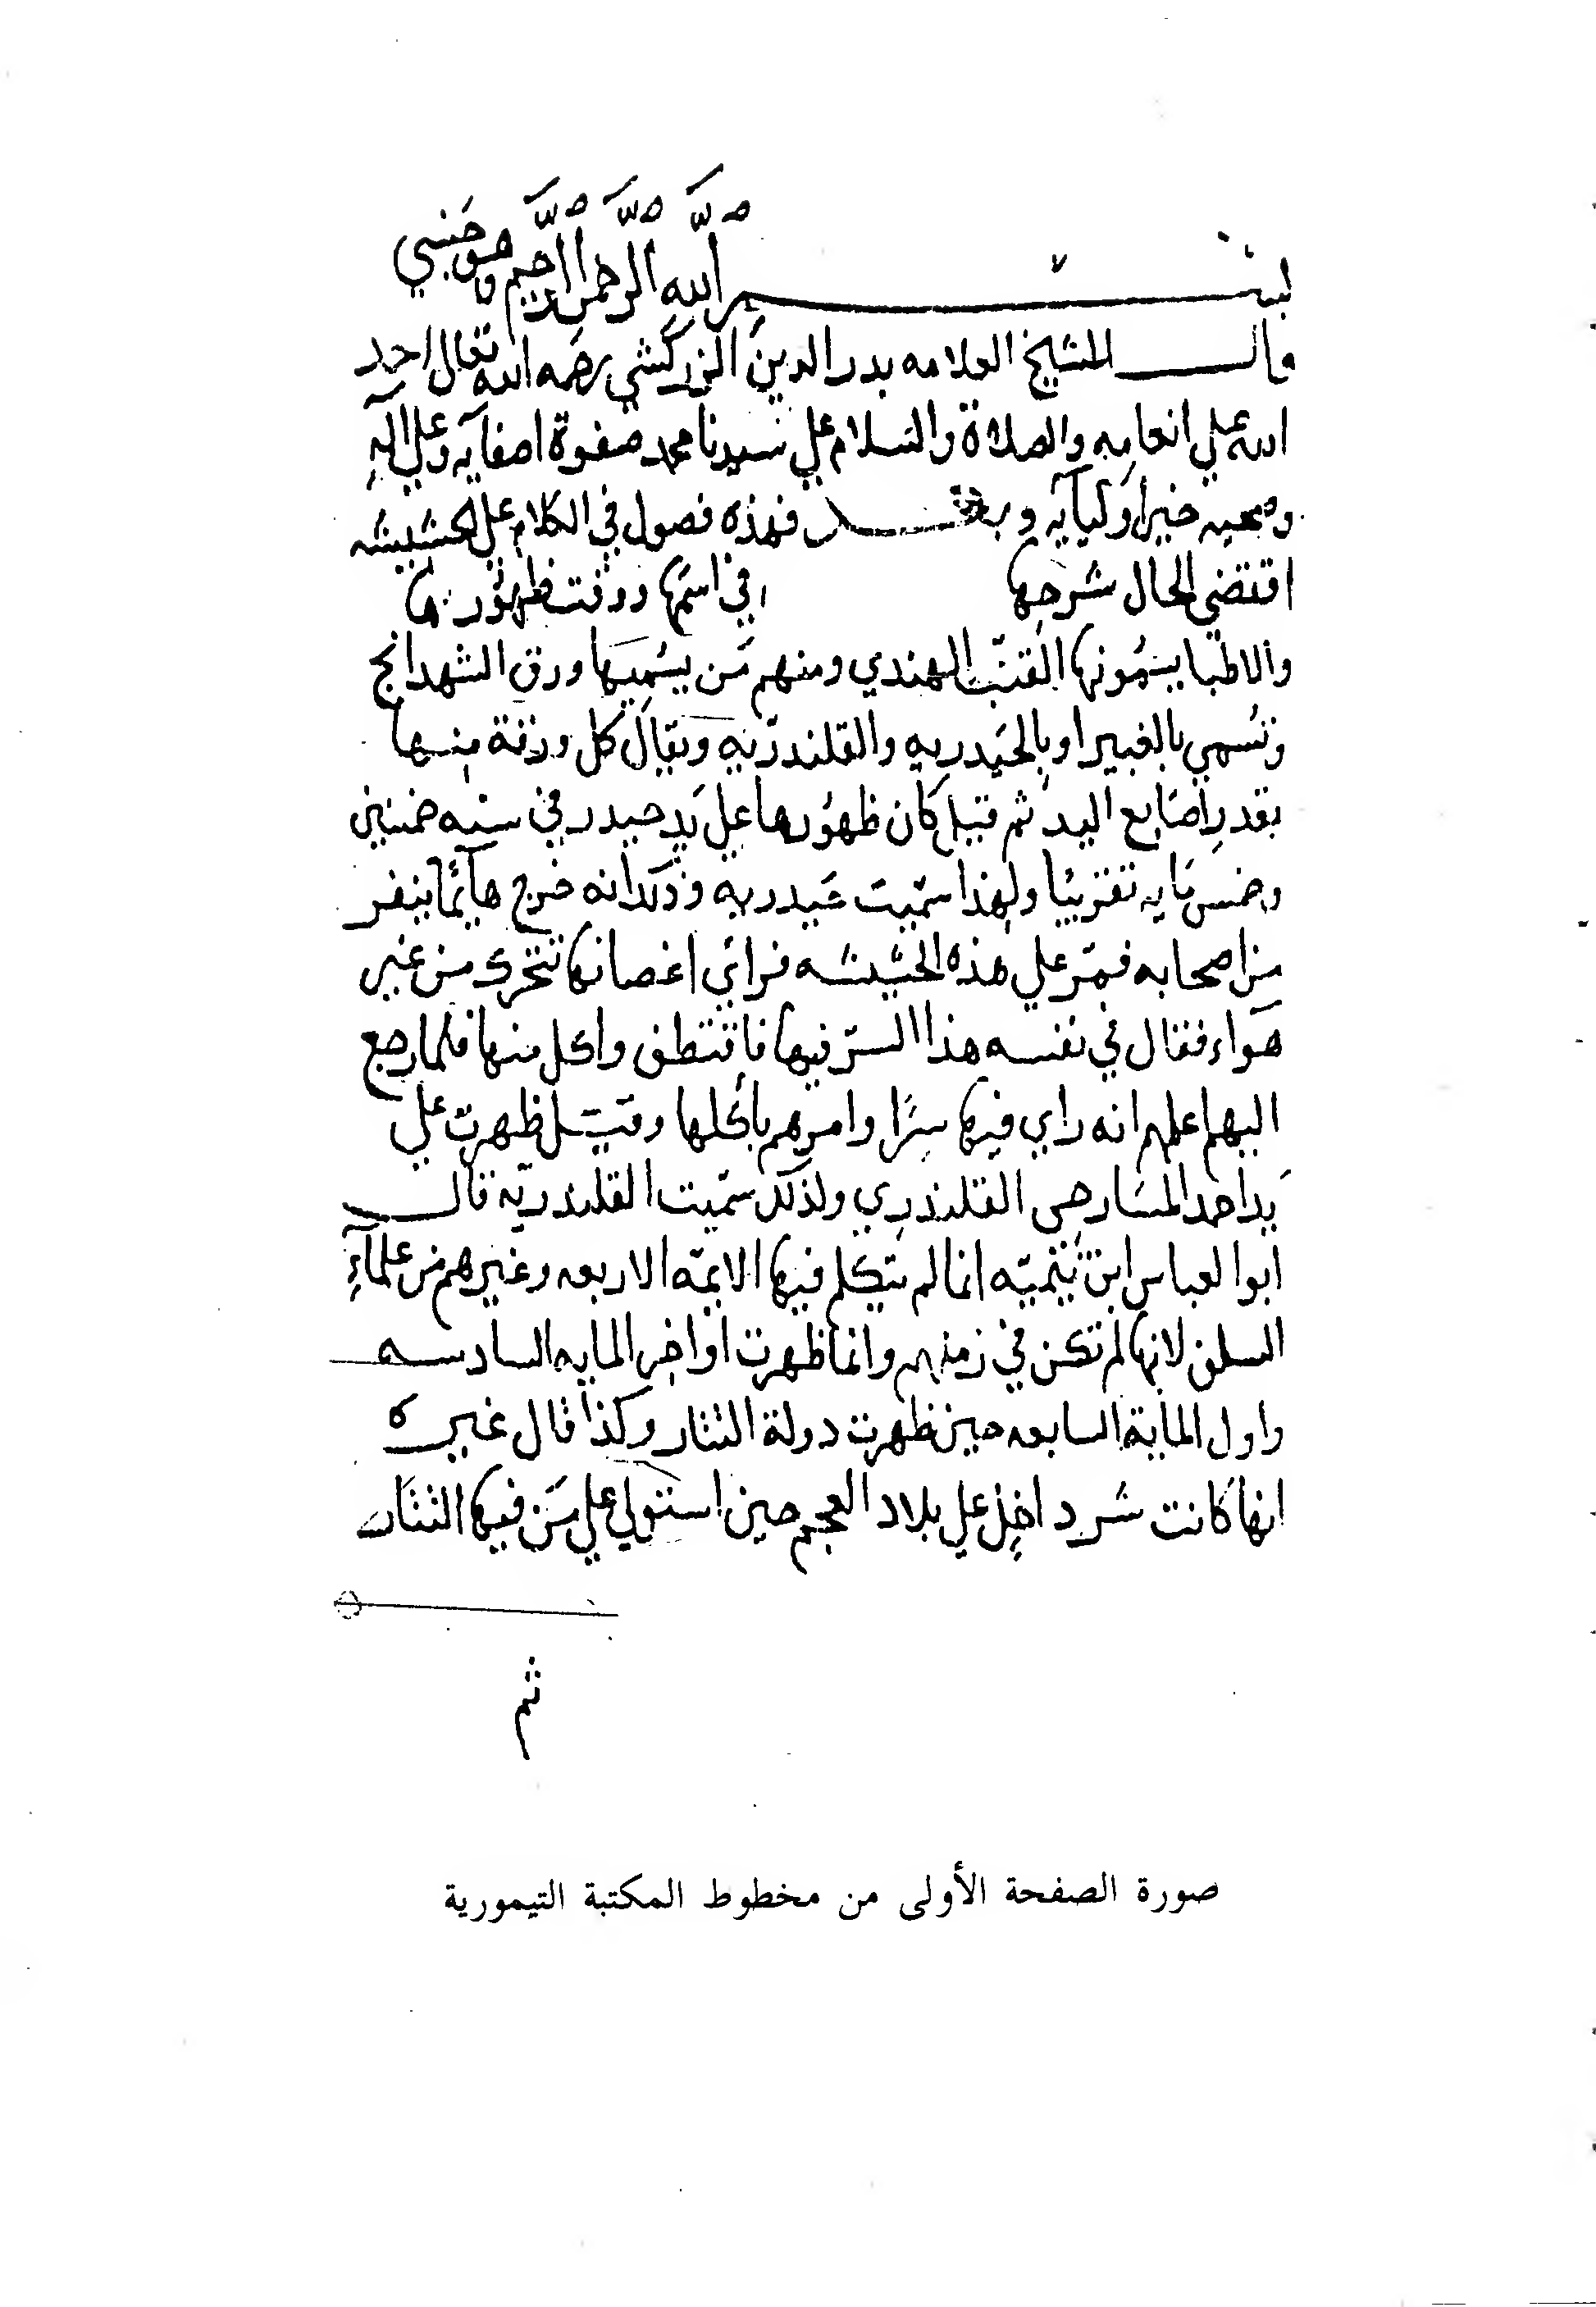 بسم الله الرحمن الرحيم وهو حسبي
قال الشيخ العلامه بدر الدين الزركشي رحمه الله تعالى احمد
الله علي انعامه والصلاة والسلام علي سيدنا محمد صفوة اصفيآيه وعلي اله
وصحبه خير اوليآيه وبعد فهذه فصول في الكلام علي الحشيشه
اقتضي الحال شرحها ا في اسمها ووقت ظهورها
والاطبا يسمونها القنب الهندي ومنهم من يسميها ورق الشهدانج
وتسمي بالغبيرا وبالحيدريه والقلندريه ويقال كل ورقة منها
بقدر اصابع اليد ثم قيل كان ظهورها علي يد حيدر في سنه خمسين
وخمس مايه تقريبا ولهذا سميت حيدريه وذلك انه خرج هآئما ينفر
من اصحابه فمر علي هذه الحشيشه فراي اغصانها تتحرك من غير
هواء فقال في نفسه هذا السر فيها فاقتطف واكل منها فلما رجع
اليهم اعلمهم انه راي فيها سرا وامرهم بأكلها وقيل ظهرت علي
يد احمد المسارحي القلندري ولذلك سميت القلندرية قال
ابو العباس ابن تيمية انما لم يتكلم فيها الايمه الاربعه وغيرهم من علمآء
السلف لانها لم تكن في زمنهم وانما ظهرت اواخر المايه السادسه
واول الماية السابعه حين ظهرت دولة التتار وكذا قال غيره
انها كانت شر داخل علي بلاد العجم حين استولي علي من فيها التتار
ثم
صورة الصفحة الأولى من مخطوط المكتبة التيمورية